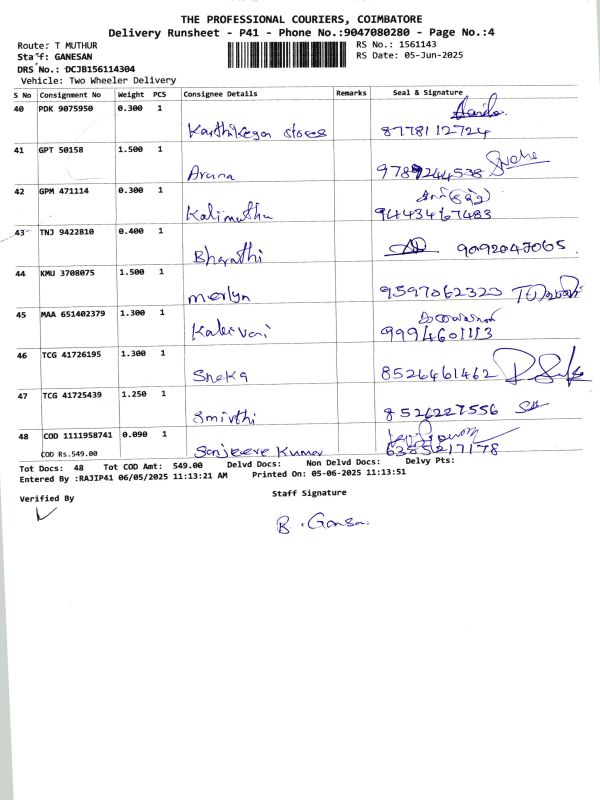 THE PROFESSIONAL COURIERS, COIMBATORE
Delivery Runsheet - P41 - Phone No.:9047080280 - Page No.:4
Route: T MUTHUR RS No.: 1561143
Staff: GANESAN RS Date: 05-Jun-2025
DRS No.: DCJB156114304
Vehicle: Two Wheeler Delivery
S No Consignment No Weight PCS Consignee Details Remarks Seal & Signature
40 PDK 9075950 0.300 1
Karthikeyan stores 8778112724
41 GPT 50158 1.500 1
Aruna 9789244538
42 GPM 471114 0.300 1
Kalimuthu 9443467483
43 TNJ 9422810 0.400 1
Bharathi 9092047065
44 KMU 3708075 1.500 1
merlyn 9597062323
45 MAA 651402379 1.300 1
Kalaivani 9994601113
46 TCG 41726195 1.300 1
Sneka 8526461462
47 TCG 41725439 1.250 1
Smirthi 8526227556
48 COD 1111958741 0.090 1
COD Rs.549.00 Sanjeeve Kumar 6385217178
Tot Docs: 48 Tot COD Amt: 549.00 Delvd Docs: Non Delvd Docs: Delvy Pts:
Entered By :RAJIP41 06/05/2025 11:13:21 AM Printed On: 05-06-2025 11:13:51
Verified By Staff Signature
B. Gansa.